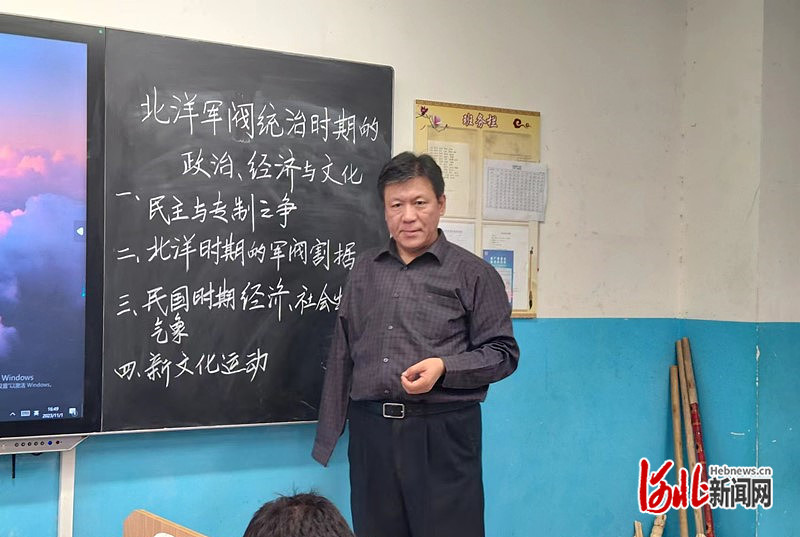 北洋军阀统治时期的
政治、经济与文化
一、民主与专制之争
二、北洋时期的军阀割据
三、民国时期经济、社会生
气象
四、新文化运动
班务栏
Windows
Windows。
英
16:49
2023/11/1
Hebnews.cn
河北新闻网